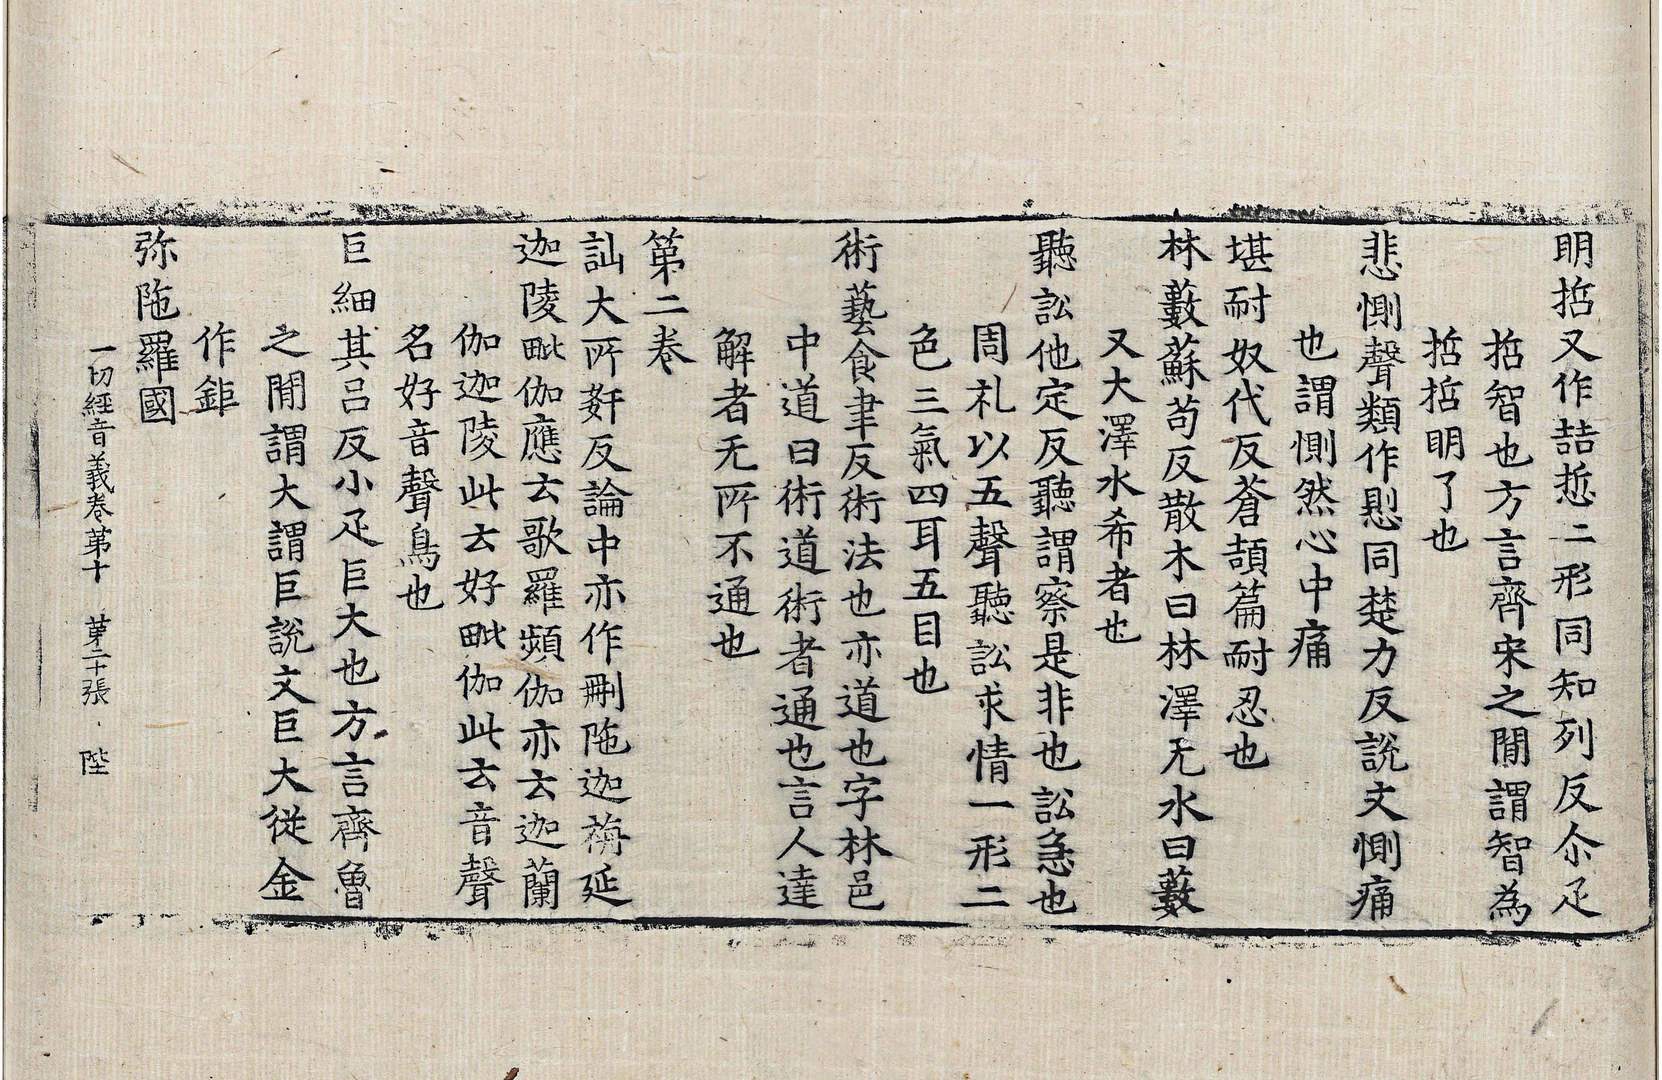 明哲又作喆悊二形同知列反尒疋
哲智也方言齊宋之閒謂智為
哲哲明了也
悲惻聲類作㥽同楚力反說文惻痛
也謂惻然心中痛
堪耐奴代反蒼頡篇耐忍也
林藪蘇苟反散木曰林澤无水曰藪
又大澤水希者也
聽訟他定反聽謂察是非也訟急也
周礼以五聲聽訟求情一形二
色三氣四耳五目也
術藝食聿反術法也亦道也字林邑
中道曰術道術者通也言人達
解者无所不通也
第二卷
訕大所姧反論中亦作刪陁迦旃延
迦陵毗伽應云歌羅頻伽亦云迦蘭
伽迦陵此云好毗伽此云音聲
名好音聲鳥也
巨細其呂反小疋巨大也方言齊魯
之閒謂大謂巨說文巨大從金
作鉅
弥陁羅國
一切經音義卷第十 第二十張 陛